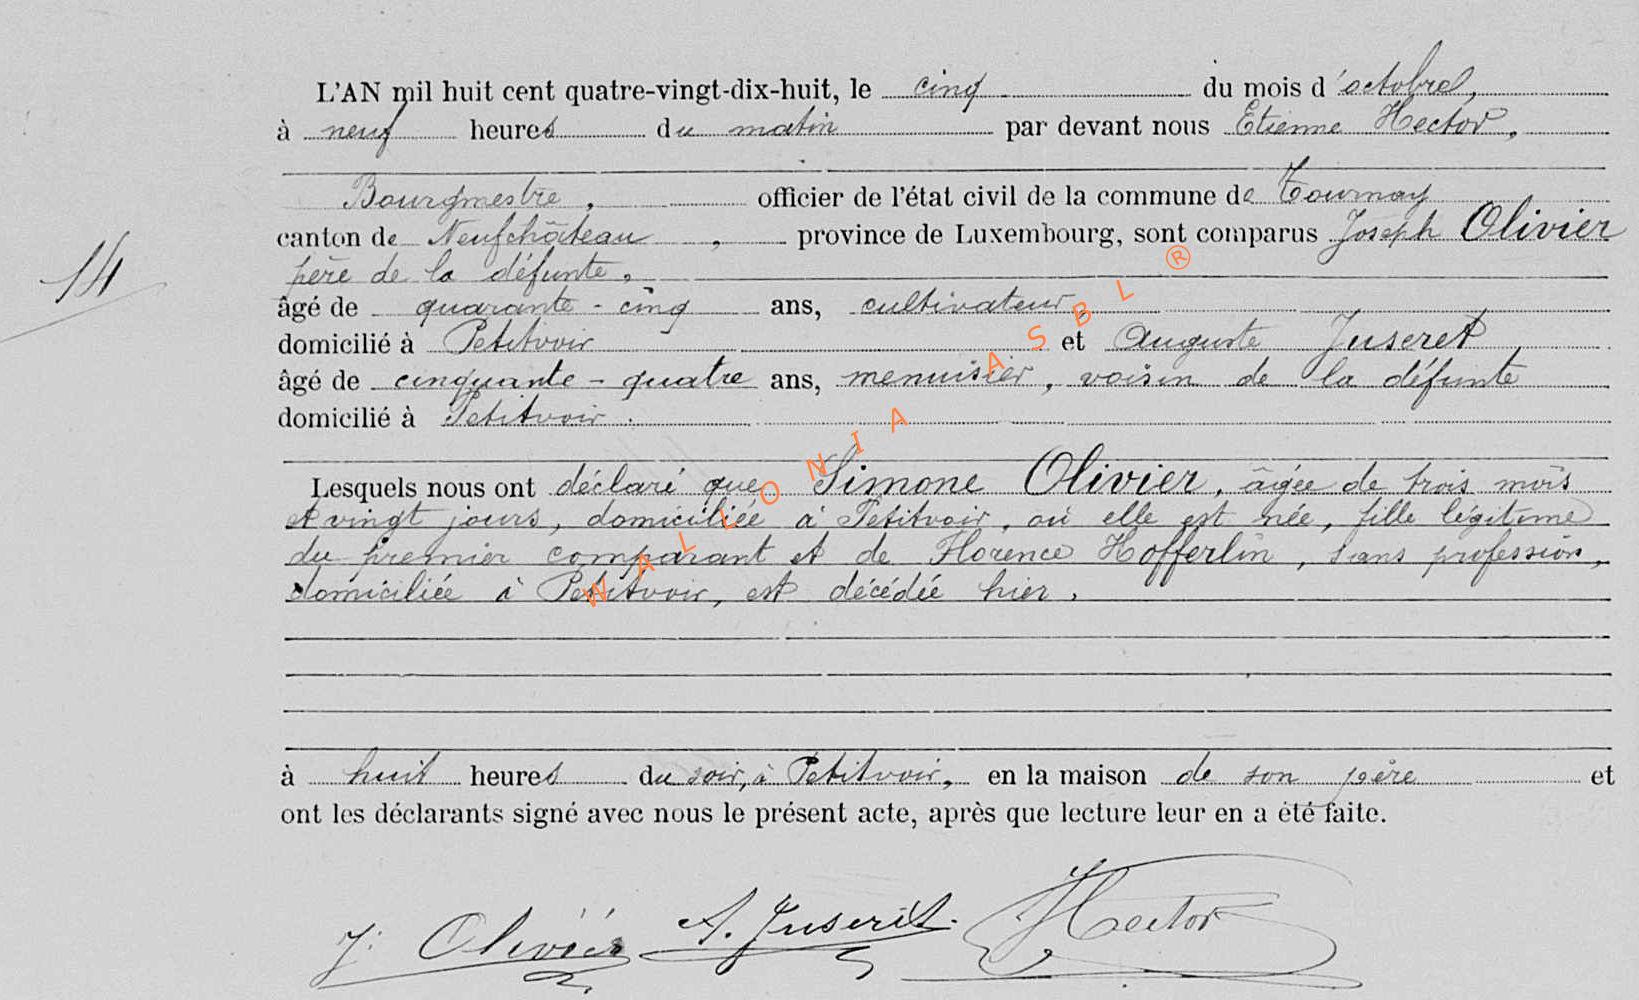 L'AN mil huit cent quatre-vingt-dix-huit, le cinq du mois d'octobre,
à neuf heures du matin par devant nous Etienne Hector,
Bourgmestre, officier de l'état civil de la commune de Tournay
canton de Neufchâteau, province de Luxembourg, sont comparus Joseph Olivier
père de la défunte,
14
âgé de quarante-cinq ans, cultivateur,
domicilié à Petitvoir et Auguste Juseret
âgé de cinquante-quatre ans, menuisier, voisin de la défunte
domicilié à Petitvoir.
Lesquels nous ont déclaré que Simone Olivier, âgée de trois mois
et vingt jours, domiciliée à Petitvoir, où elle est née, fille légitime
du premier comparant et de Florence Hofferlin, sans profession,
domiciliée à Petitvoir, est décédée hier,
à huit heures du soir, à Petitvoir, en la maison de son père et
ont les déclarants signé avec nous le présent acte, après que lecture leur en a été faite.
J. Olivier A. Juseret. Hector
WALLONIA ASBL ®